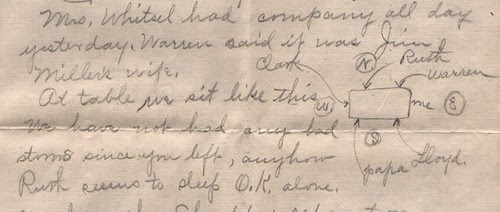 Mrs. Whitsel had company all day
yesterday. Warren said it was Jim
Miller's wife.
Clark
N
Ruth
Warren
At table we sit like this
W
me
E
We have not had any bad
S
storms since you left, anyhow
papa
Lloyd.
Ruth seems to sleep O.K. alone.